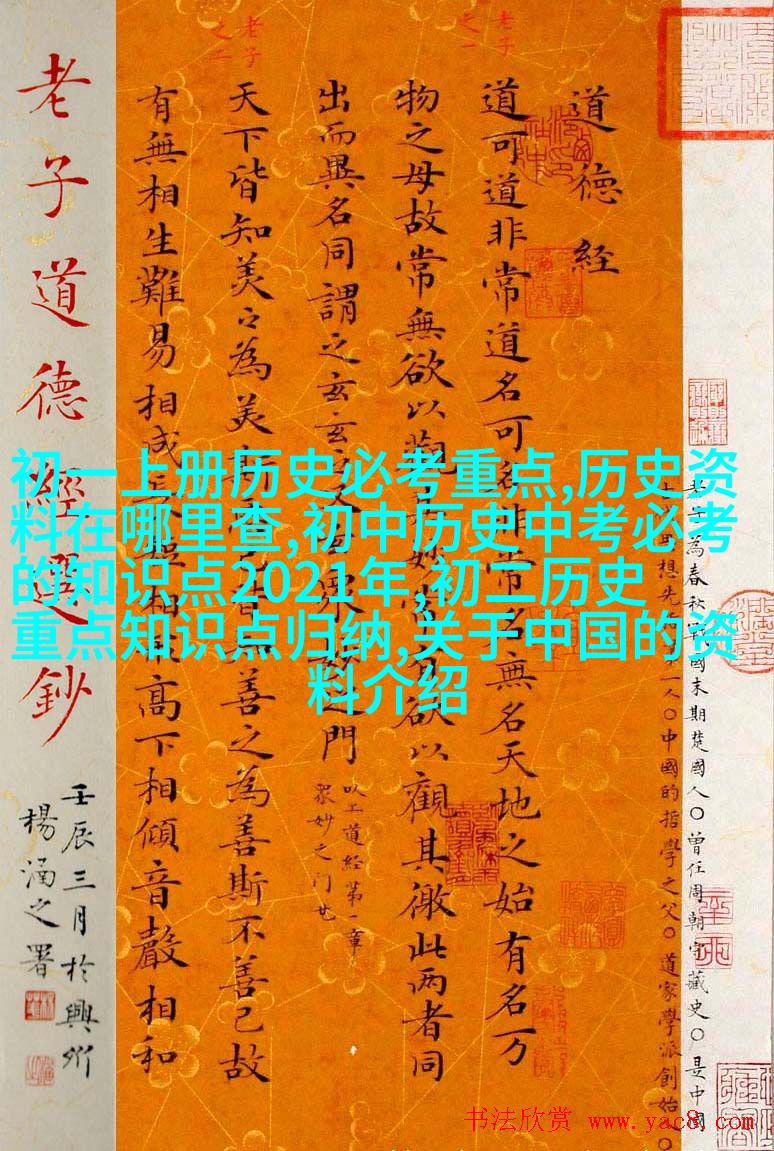 初一上册历史必考重点,历史资
料在哪里查,初中历史中考必考
的知识点2021年,初二历史
重点知识点归纳,关于中国的资
料介绍
老子為春秋戰國末期楚國人〇曾任周朝守藏史〇是中國
思想先一人〇中國的哲學之父〇道家學派創始〇
道德經
老子之一
道可道非常道名可名非常名無名天地之始有名万
物之母故常無欲以觀其妙常有欲以觀其徼此两者同
出而異名同謂之玄玄之又玄眾妙之門
以上道經第一章
老子之二
天下皆知美之為美斯惡已皆知善之為善斯不善已故
有無相生難易相成長短相形高下相傾音聲相和
老子道德經選鈔
壬辰三月於興州
楊涵之署
书法欣赏 www.yac8.com